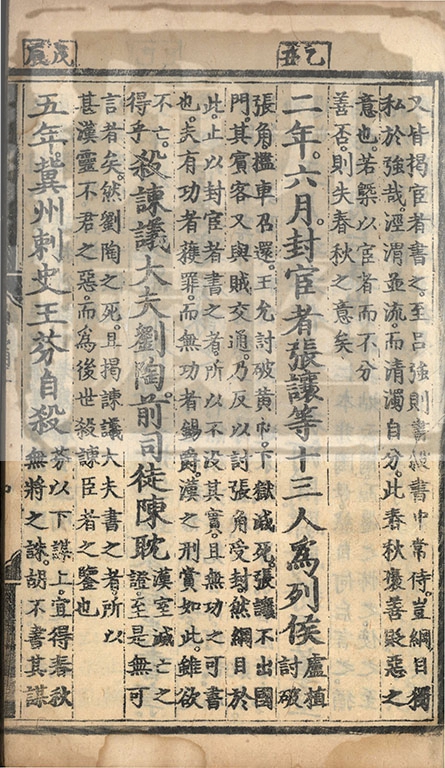 乙丑
又皆揭宦者書之。至呂強則書殺書中常侍。豈綱目獨
私於強哉。涇渭並流。而清濁自分。此春秋褒善貶惡之
意也。若槩以宦者而不分
善否。則失春秋之意矣
二年。六月。封宦者張讓等十三人為列侯
盧植
討破
張角檻車召還。王允討破黃巾。下獄減死。張讓不出國
門。其賓客又與賊交通。乃反以討張角受封。然綱目於
此。止以封宦者書之者。所以不没其實。且無功之可書
也。夫有功者獲罪。而無功者錫爵。漢之刑賞如此。雖欲
不亡。
得乎
殺諫議大夫劉陶。前司徒陳耽
漢室滅亡之
證。至是無可
言者矣。然劉陶之死。且揭諫議大夫書之者。所以
甚漢靈不君之惡。而為後世殺諫臣者之鑒也
戊辰
五年。冀州刺史王芬自殺
芬以下謀上。宜得春秋
無將之誅。胡不書其謀